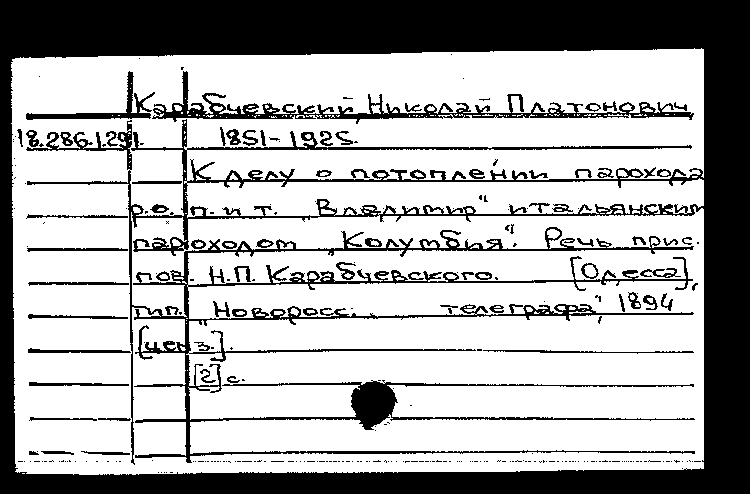 Карабчевский, Николай Платонович,
18.286.1.291. 1851-1925.
К делу о потоплении парохода
р.о. п. и т. „Владимир" итальянским
пароходом „Колумбия". Речь прис.
пов. Н.П. Карабчевского. [Одесса],
тип. „Новоросс. телеграфа", 1894
[ценз.].
[2] с.